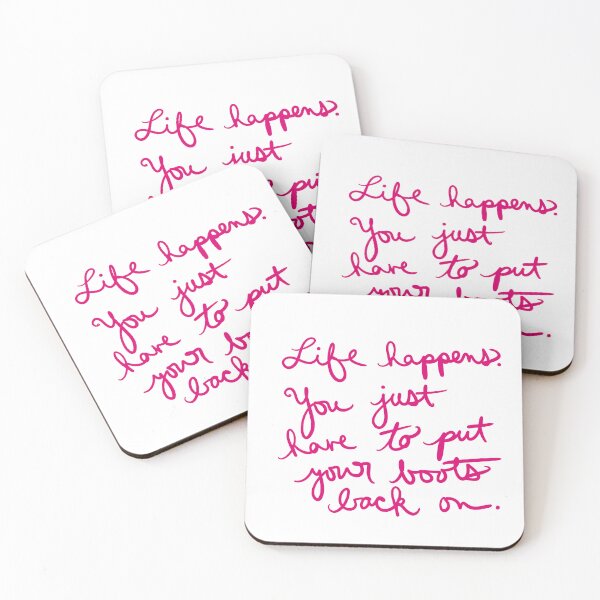 Life happens.
You just
Life happens.
You just
have to put
your boots
Life happens.
You just
have to put
your
back
Life happens.
You just
have to put
your boots
back on.